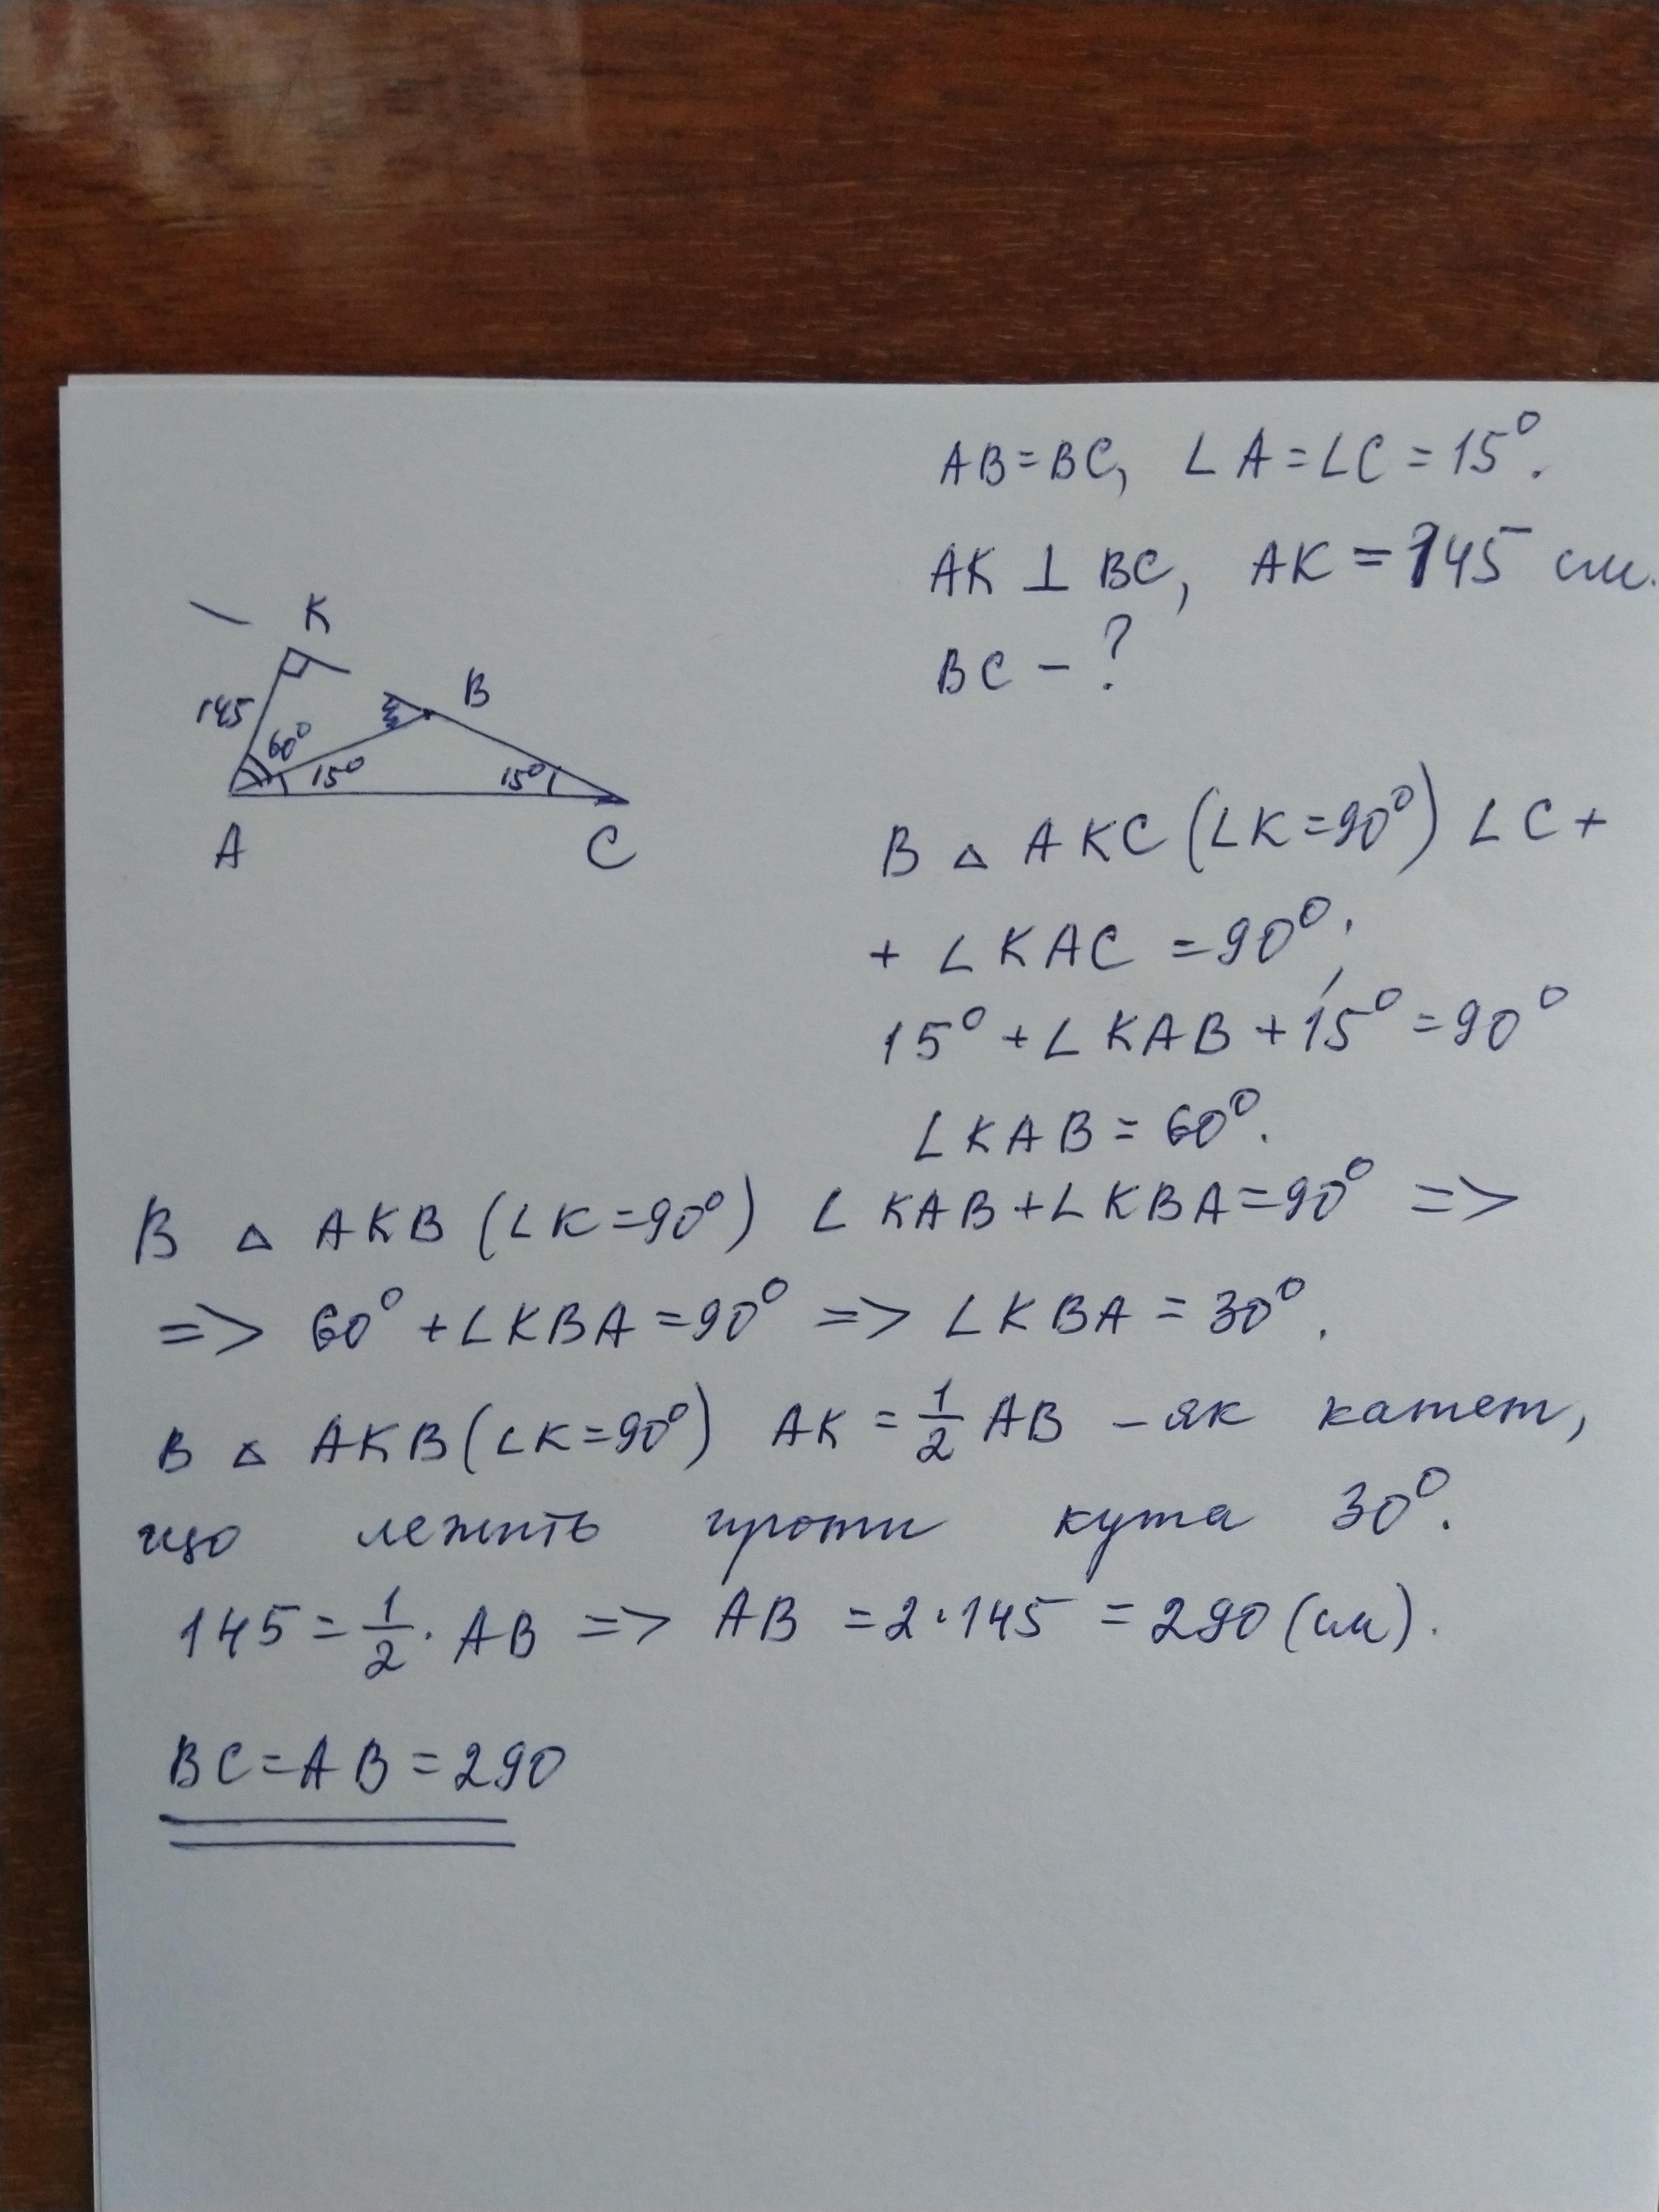 AB=BC, ∠A=∠C=15°.
AK ⊥ BC, AK=145 см.
BC-?
K
145
B
60°
15°
15°
A
C
В △ AKC (∠K=90°) ∠C+
+ ∠KAC =90°;
15°+∠KAB+15°=90°
∠KAB=60°.
В △ AKB (∠K=90°) ∠KAB+∠KBA=90° =>
=> 60°+∠KBA=90° => ∠KBA=30°.
В △ AKB (∠K=90°) AK=1/2 AB - як катет,
що лежить проти кута 30°.
145=1/2·AB => AB=2·145=290(см).
BC=AB=290